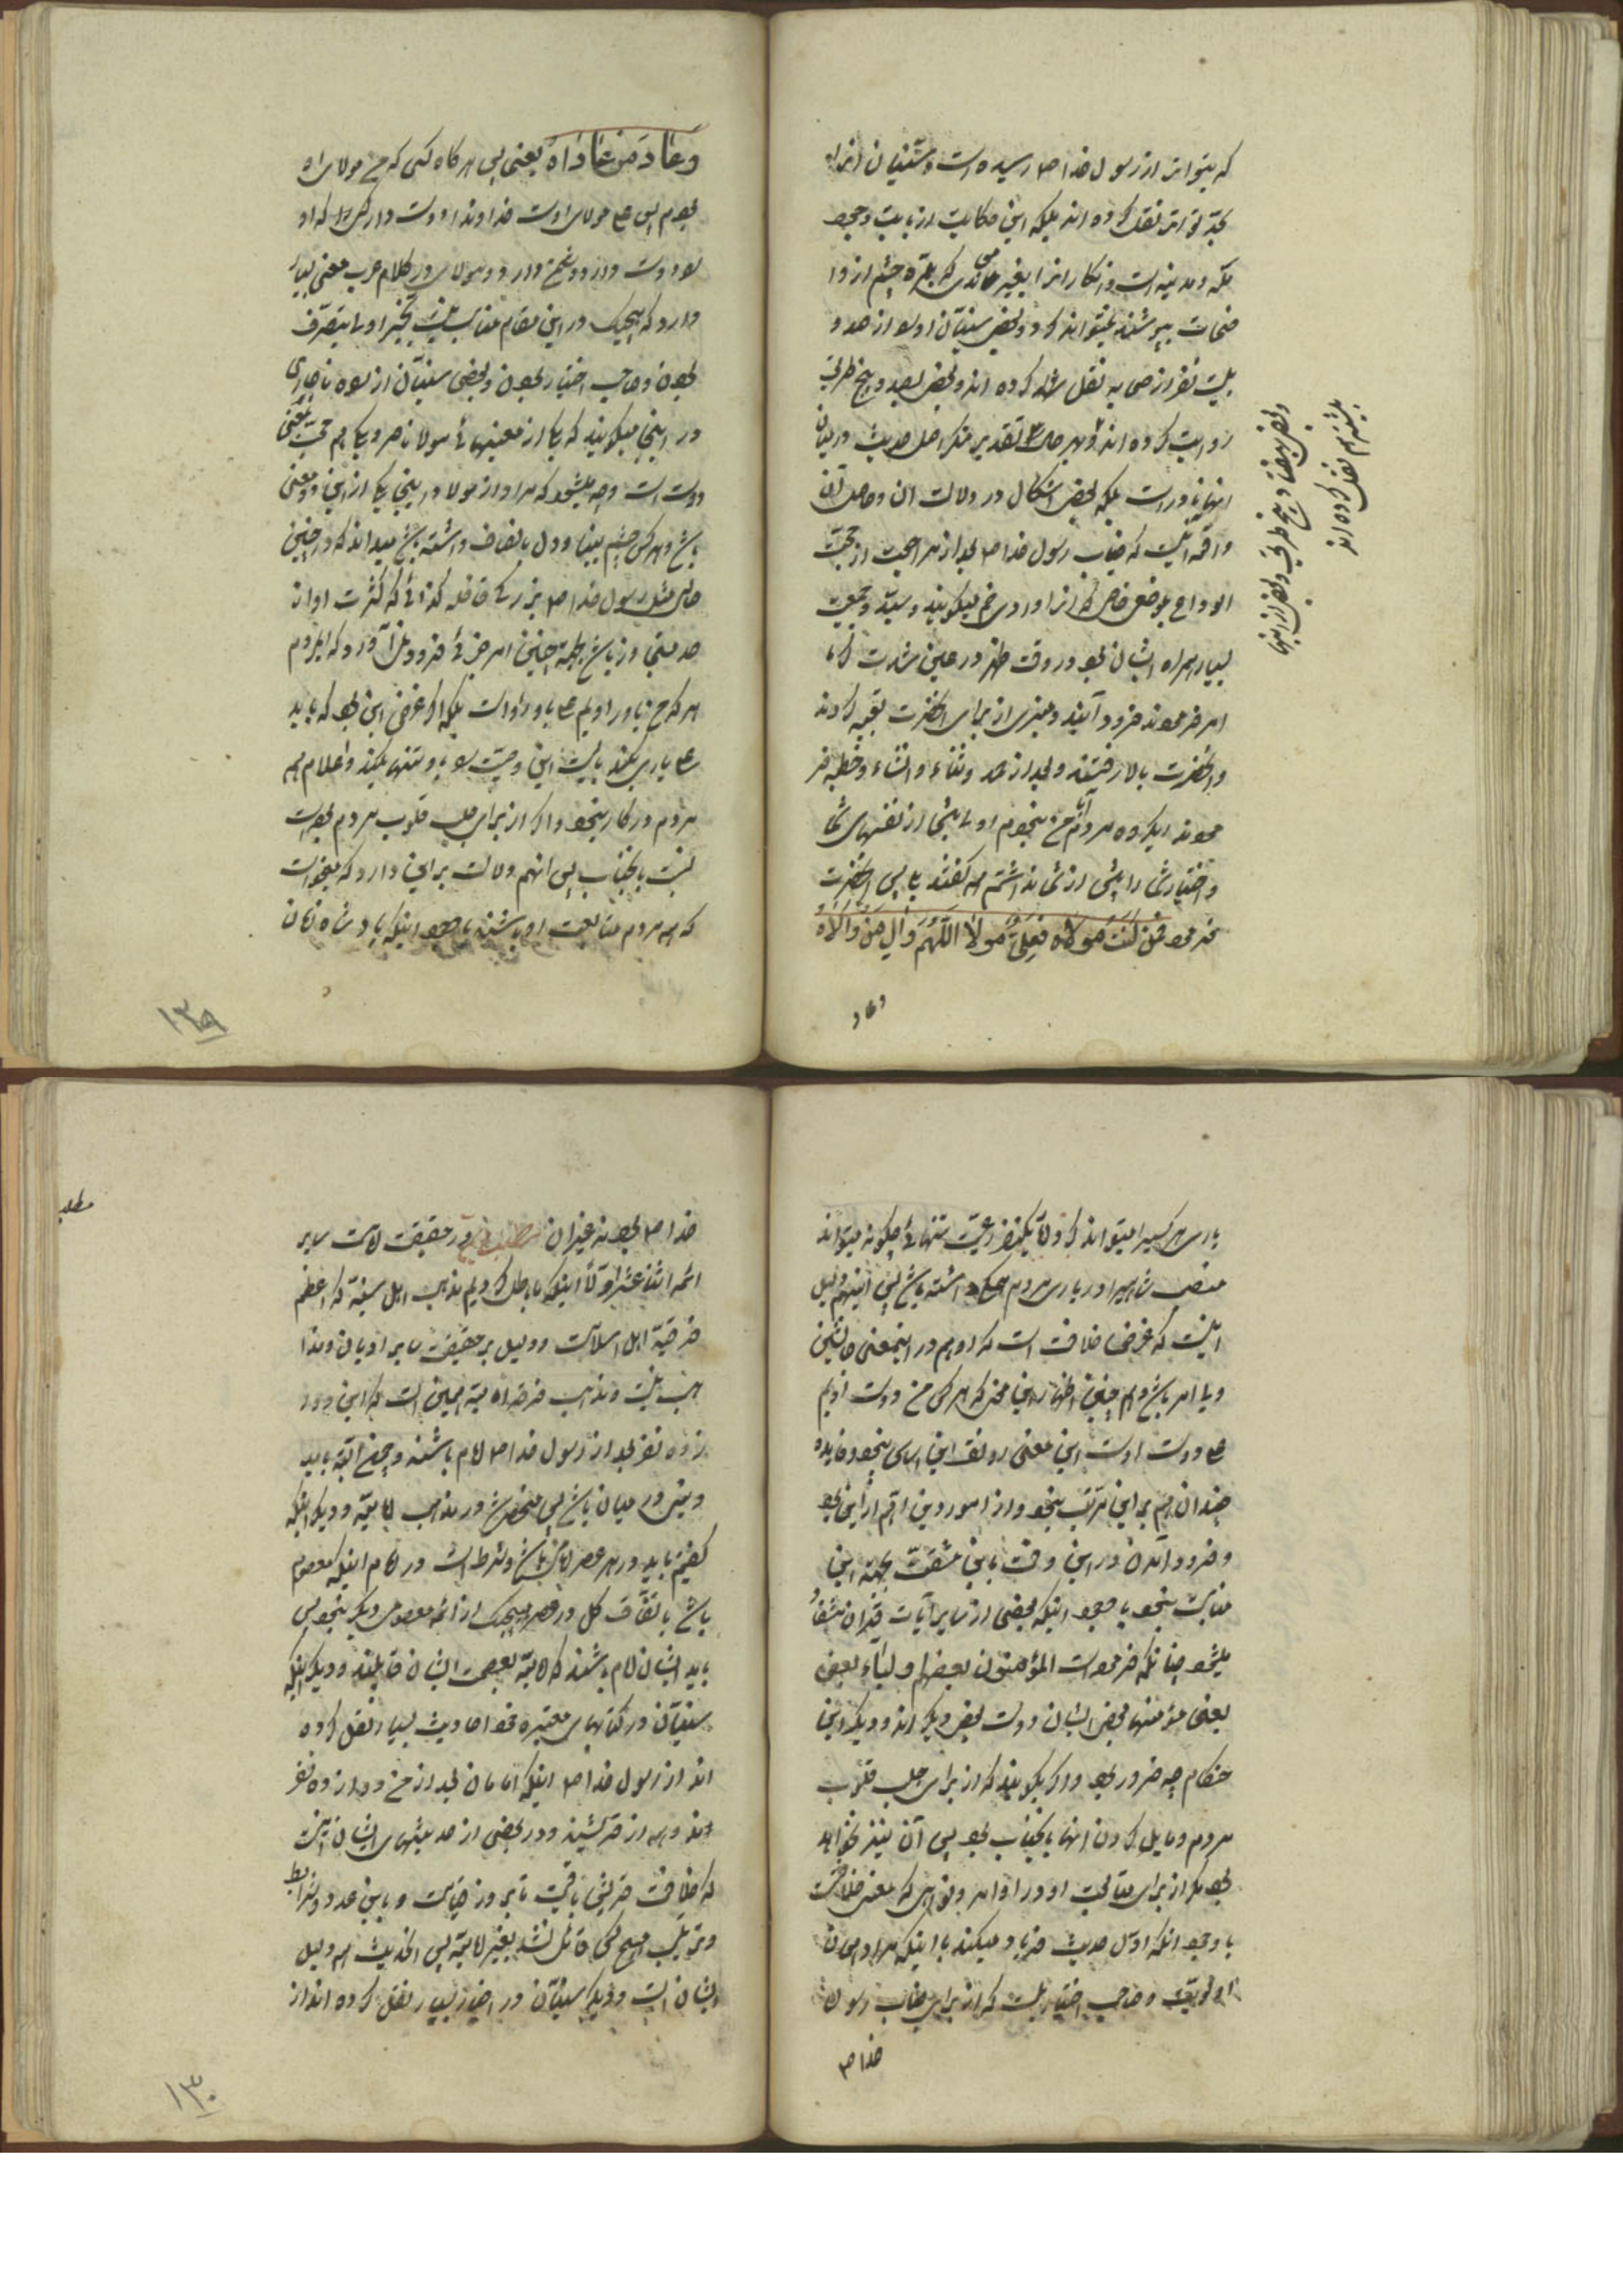 که بتواتر از رسول خدا ص رسیده است و سنّیان انرا
بحدّ تواتر نقل کرده اند بلکه این حکایت از بابت وجود
مکه و مدینه است و انکار انرا بغیر معاندی که بالمرّه چشم از وا
ضحات بپوشند نمیتواند کرد و بعضی سنیّان او را از صد و
بیست نفر از صحابه نقل کرده اند و بعضی بصد و پنج طریق
روایت کرده اند و بهر حال تقدیر منکر اصل حدیث در میان
انها نادر است بلکه بعضی اشکال در دلالت ان و حاصل آن
واقعه اینست که جناب رسول خدا ص بعد از مراجعت از حجّت
الوداع بموضع خاصی که انرا وادی خم میگویند رسید و جمعیت
بسیار همراه ایشان بود در وقت ظهر در عین شدت گرما
امر فرمودند فرود آیند و منبری از برای انحضرت تعبیه کردند
و انحضرت بالا رفتند و بعد از حمد و ثناء و انشاء و خطبه فر
مودند ایگروه مردم آیا من نبودم اولی بشما از نفسهای شما
و اختیار شما را بیش از شما نداشتم همه گفتند بلی پس انحضرت
فرمود فمن کنت مولاه فعلیّ مولاه اللّهم وال من والاه
وعاد
و بعضی بهفتاد و پنج طریق و بعضی از اینها
بیشتر هم نقل کرده اند
وعاد من عاداه یعنی پس هر گاه کسی که من مولای او
بودم پس علی مولای اوست خداوندا دوست دار کسی را که او
را دوست دارد و دشمن دارد و مولا در کلام عرب معنی بسیار
دارد که هیچیک در این مقام مناسب نیست بغیر اولی بتصرّف
بودن و صاحب اختیار بودن و بعضی سنیّان از راه ناچاری
در اینجا میگویند که یکی از معنیهای مولا ناصر و یکی هم محبّ بمعنی
دوست است و چه میشود که مراد از مولا در اینجا یکی از این دو معنی
باشد و هر کس چشم بینا و دل با انصاف داشته باشد میداند که در چنین
حالی مثل رسول خدا ص بزرگی قافله گذرانی که کثرت او از
حد متجاوز باشد بجهة چنین امر جزئی فرود بیاورد که ایمردم
هر که من یاور اویم علی یاور اوست بلکه اگر غرض این بود که باید
علی یاری بکند بایست این وصیت را باو تنها بکند و اعلام هم
مردم در کار نبود و اگر از برای جلب قلوب مردم بود است
نسبت بانجناب پس انهم دلالت بر این دارد که میخواست
که همه مردم متابعت او باشند با وجود اینکه پادشاه زمان
۱۲۹
یاری هر کسیرا میتواند کرد و الّا یکنفر رعیّت بتنهائی چگونه میتواند
منصب شاهیرا در یاری مردم داشته باشد پس اینهم دلیل
اینست که غرض خلافت است که او هم در اینمعنی جانشین
و یا امر باشد و هم چنین اظهار این سخن که هر کس من دوست اویم
علی دوست اوست این معنی رونق این اساس نبود و فایده
چندان هم بر این مترتّب نبود و از امور دین اهّم از این بود
و فرود آمدن در این وقت باین مشقّت بجهة این
مناسب نبود با وجود اینکه بعضی از سایر آیات قرآن مستفاد
میشود چنانکه فرموده است المؤمنون بعضهم اولیاء بعض
یعنی مؤمنها بعضی ایشان دوست بعضی دیگر اند و دیگر این
هنگام چه ضرور بود و اگر بگویند که از برای جلب قلوب
مردم و مایل کردن انها بانجناب بود پس آن نیز نخواهد
بود مگر از برای متابعت او در اوامر و نواهی که معنی خلافت
با وجود انکه اوّل حدیث فریاد میکند با اینکه مراد همان
اولویّت و صاحب اختیاریست که از برای جناب رسول
خدا ص
خدا ص بود نه غیر ان مطلب در حقیقت امامت سایر
ائمه اثنا عشر اوّلا اینکه باطل کردیم مذهب اهل سنّة که اعظم
فرقهٔ اهل اسلامست و دلیل بر حقیقت سایر ادیان و مذا
هب نیست و مذهب فرقه امامیّه همین است که این دوا
زده نفر بعد از رسول خدا ص امام باشند و چون البتّه باید
دینی در میان باشد پس منحصر شد در مذهب امامیّه و دیگر اینکه
گفتیم باید در هر عصر امامی باشد و شرط است در امام اینکه معصوم
باشد باتّفاق کل در عصر هیچیک از ائمه معصومی دیگر نبود پس
باید ایشان امام باشند که امامیّه بعصمت ایشان قایلند و دیگر اینکه
سنیّان در کتابهای معتبره خود احادیث بسیار نقل کرده
اند از رسول خدا ص اینکه امامان بعد از من دوازده نفر
اند و همه از قریشند و در بعضی از حدیثهای ایشان اینست
که خلافت قریش باقیست تا بروز قیامت و باین عدد و شرایط
و ترتیب هیچ کس قائل نشده بغیر امامیّه پس انحدیث هم دلیل
ایشان است و دیگر سنیّان در اخبار بسیار نقل کرده اند از
مطلب
۱۳۰